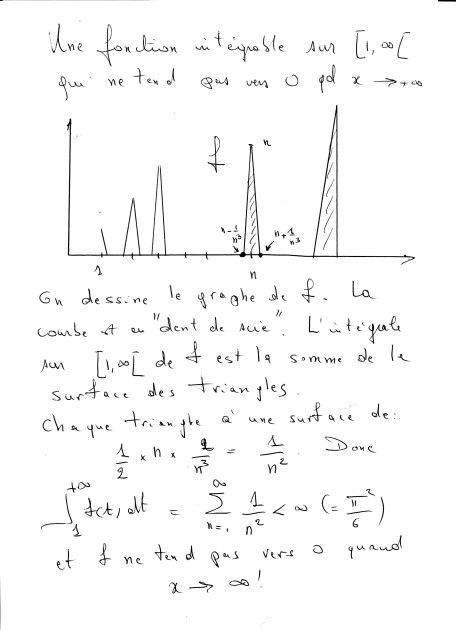 Une fonction intégrable sur [1, ∞[
qui ne tend pas vers 0 qd x → +∞
f
n
n - 1/n³
n + 1/n³
1
n
On dessine le graphe de f. La
courbe est en "dent de scie". L'intégrale
sur [1, ∞[ de f est la somme de la
surface des triangles.
Chaque triangle à une surface de:
1/2 × n × 2/n³ = 1/n². Donc
∫₁^{+∞} f(t) dt = ∑_{n=1}^{∞} 1/n² < ∞ (= π²/6)
et f ne tend pas vers 0 quand
x → ∞!